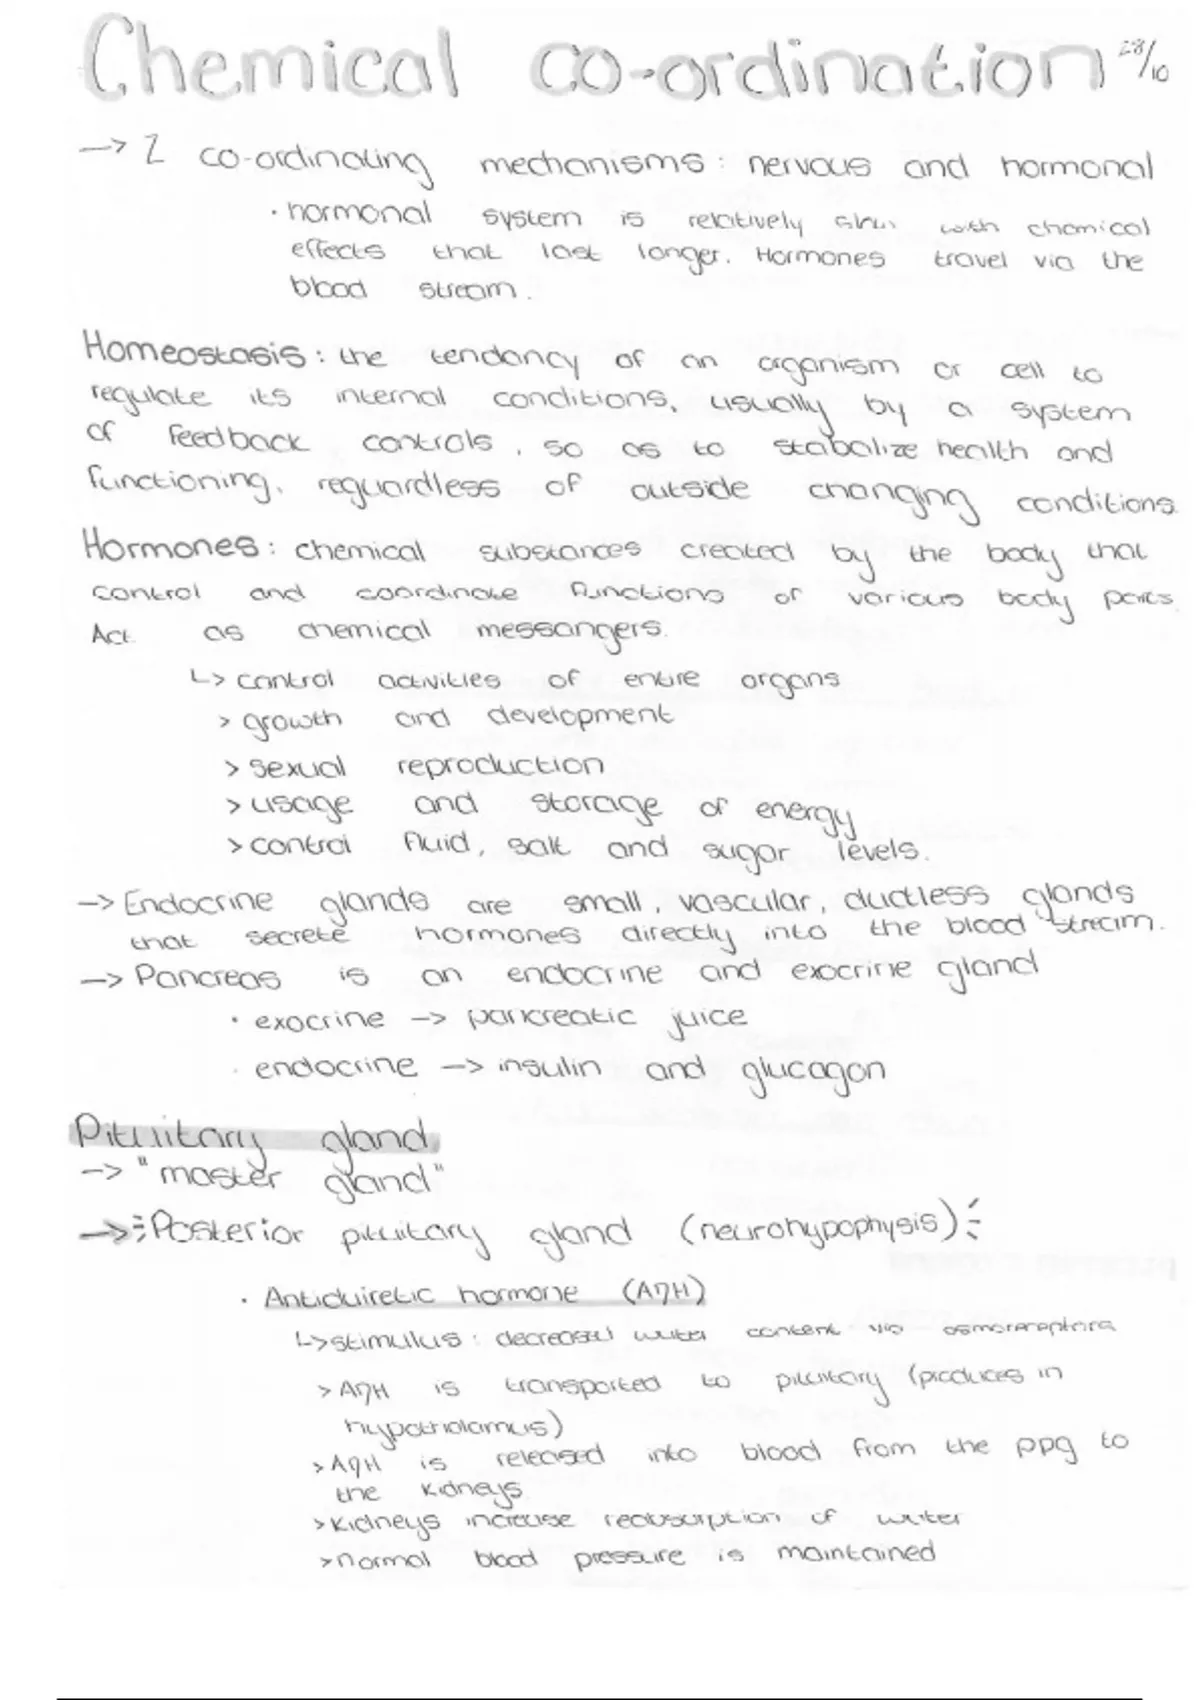 Chemical co-ordination 28/10
-> 2 co-ordinating mechanisms: nervous and hormonal
· hormonal system is relatively slow with chemical
effects that last longer. Hormones travel via the
blood stream.
Homeostasis: the tendancy of an organism or cell to
regulate its internal conditions, usually by a system
of feedback controls, so as to stabalize health and
functioning, reguardless of outside changing conditions.
Hormones: chemical substances created by the body that
control and coordinate functions of various body parts.
Act as chemical messangers.
↳ control activities of entire organs
> growth and development
> sexual reproduction
> usage and storage of energy
> control fluid, salt and sugar levels.
-> Endocrine glands are small, vascular, ductless glands
that secrete hormones directly into the blood stream.
-> Pancreas is an endocrine and exocrine gland
· exocrine -> pancreatic juice
· endocrine -> insulin and glucagon
Pituitary gland
-> "master gland"
-> Posterior pituitary gland (neurohypophysis)
· Antiduiretic hormone (ADH)
↳ stimulus: decreased water content via osmoreceptors
> ADH is transported to pituitary (produces in
hypothalamus)
> ADH is released into blood from the ppg to
the kidneys.
> kidneys increase reabsorption of water
> normal blood pressure is maintained